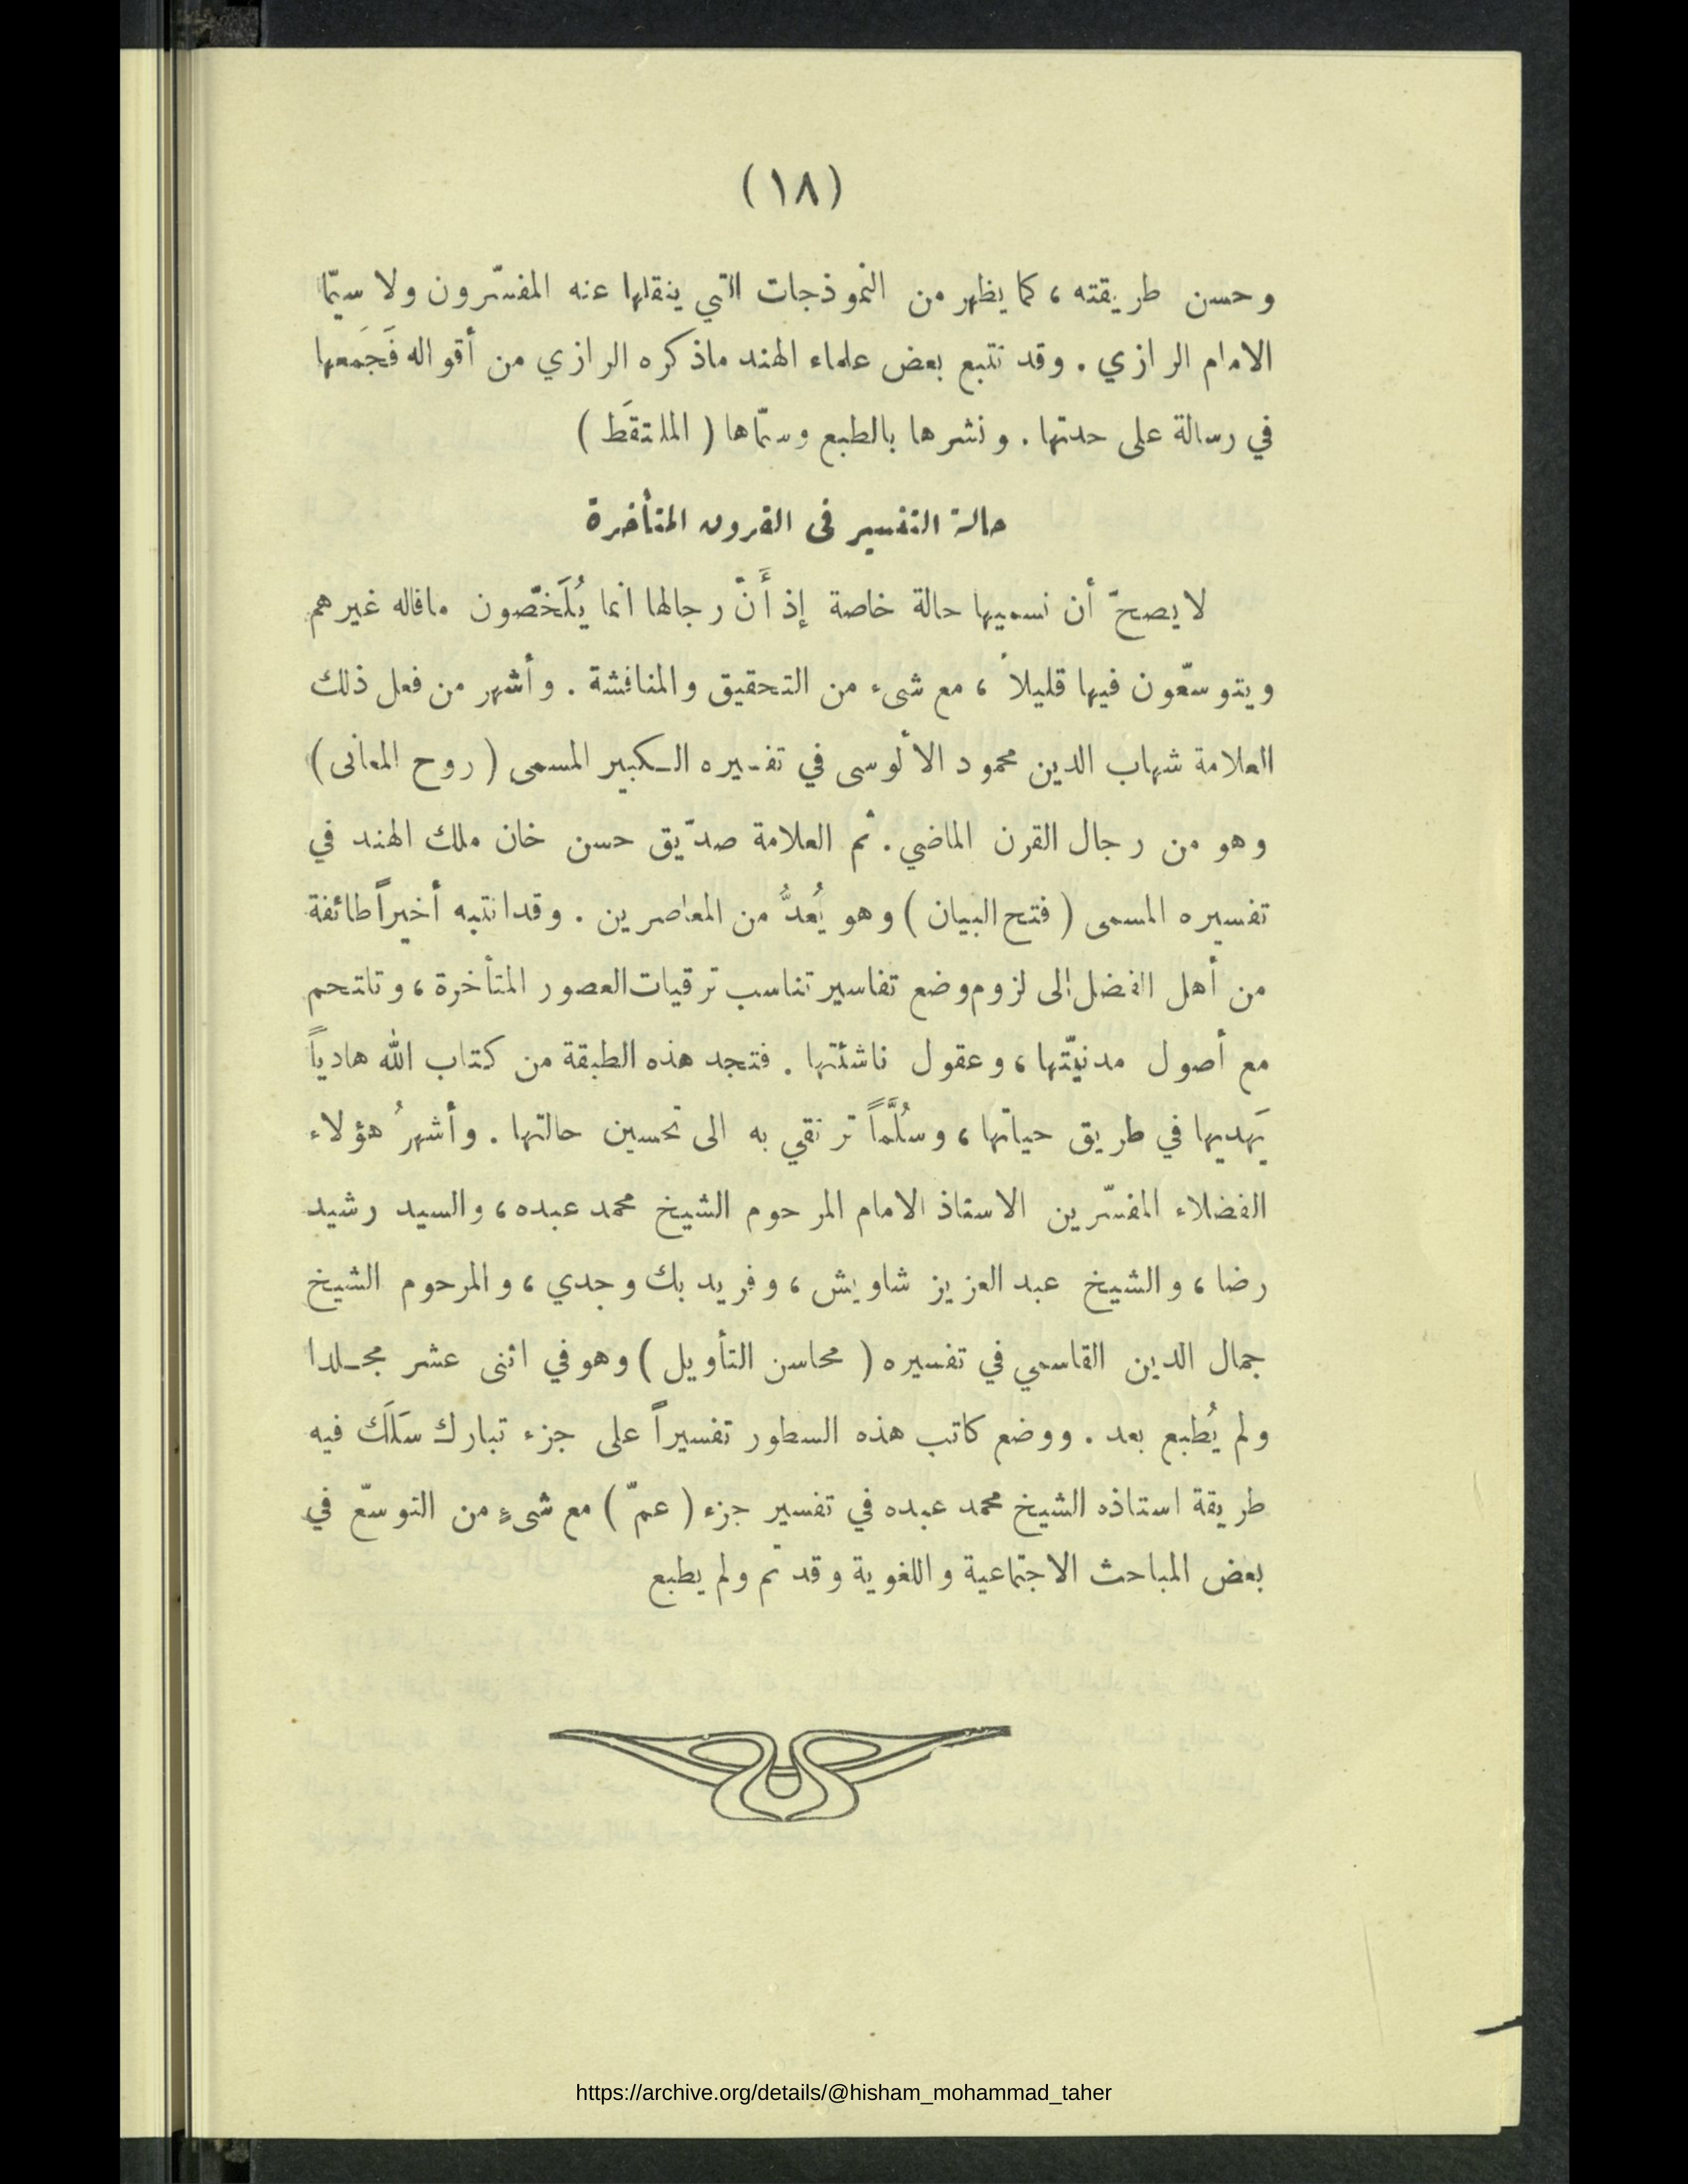 (١٨)
وحسن طريقته ، كما يظهر من النموذجات التي ينقلها عنه المفسّرون ولا سيّما
الامام الرازي . وقد تتبع بعض علماء الهند ماذكره الرازي من أقواله فَجَمعها
في رسالة على حدتها . ونشرها بالطبع وسمّاها ( الملتقَط )
حالة التفسير فى القرون المتأخرة
لا يصحّ أن نسميها حالة خاصة إذ أَنّ رجالها انما يُلَخّصون ماقاله غيرهم
ويتوسّعون فيها قليلاً ، مع شىء من التحقيق والمناقشة . وأشهر من فعل ذلك
العلامة شهاب الدين محمود الألوسى في تفسيره الـكبير المسمى ( روح المعانى )
وهو من رجال القرن الماضي . ثم العلامة صدّيق حسن خان ملك الهند في
تفسيره المسمى ( فتح البيان ) وهو يُعدُّ من المعاصرين . وقدانتبه أخيراً طائفة
من أهل الفضل إلى لزوم وضع تفاسير تناسب ترقيات العصور المتأخرة ، وتلتحم
مع أصول مدنيّتها ، وعقول ناشئتها . فتجد هذه الطبقة من كتاب الله هادياً
يَهديها في طريق حياتها ، وسُلَّماً ترتقي به الى تحسين حالتها . وأشهرُ هؤلاء
الفضلاء المفسّرين الاستاذ الامام المرحوم الشيخ محمد عبده ، والسيد رشيد
رضا ، والشيخ عبد العزيز شاويش ، وفريد بك وجدي ، والمرحوم الشيخ
جمال الدين القاسمي في تفسيره ( محاسن التأويل ) وهو في اثنى عشر مجـلدا
ولم يُطبع بعد . ووضع كاتب هذه السطور تفسيراً على جزء تبارك سَلَكَ فيه
طريقة استاذه الشيخ محمد عبده في تفسير جزء ( عمّ ) مع شىءٍ من التوسّع في
بعض المباحث الاجتماعية واللغوية وقد تم ولم يطبع
https://archive.org/details/@hisham_mohammad_taher